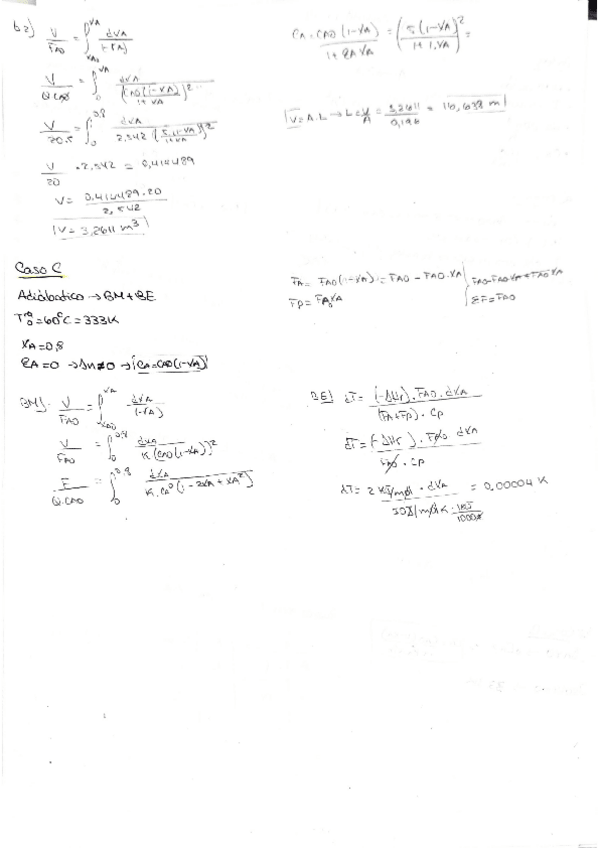 b2) V/FA0 = ∫XA0^XA dXA/(-rA)
V/Q.CA0 = ∫0^XA dXA/(CA0(1-XA)/1+XA)^2
V/20.5 = ∫0^0,8 dXA/2,542 (5.(1-XA)/1+XA)^2
V/20 . 2,542 = 0,414489
V = 0,414489.20/2,542
V = 3,2611 m³
CA = CA0(1-XA)/1+εAXA = (5(1-XA)/1+1.XA)^2 =
V=A.L → L=V/A = 3,2611/0,196 = 16,638 m
Caso C
Adiabatico → BM+BE
T0=60°C=333K
XA=0,8
εA=0 → Δn≠0 → CA=CA0(1-XA)
FA = FA0(1-XA) = FA0 - FA0.XA
FP = FA0XA
FA0-FA0XA+FA0XA
ΣF=FA0
BM) V/FA0 = ∫XA0^XA dXA/(-rA)
V/FA0 = ∫0^0,8 dXA/K(CA0(1-XA))^2
F/Q.CA0 = ∫0^0,8 dXA/K.CA0(1-2XA+XA^2)
BE) dT = (-ΔHr).FA0.dXA/(FA+FP).Cp
dT = (-ΔHr).FA0 dXA/FA0.Cp
dT = 2 KJ/mol.dXA/50J/molK.1KJ/1000J = 0,00004 K